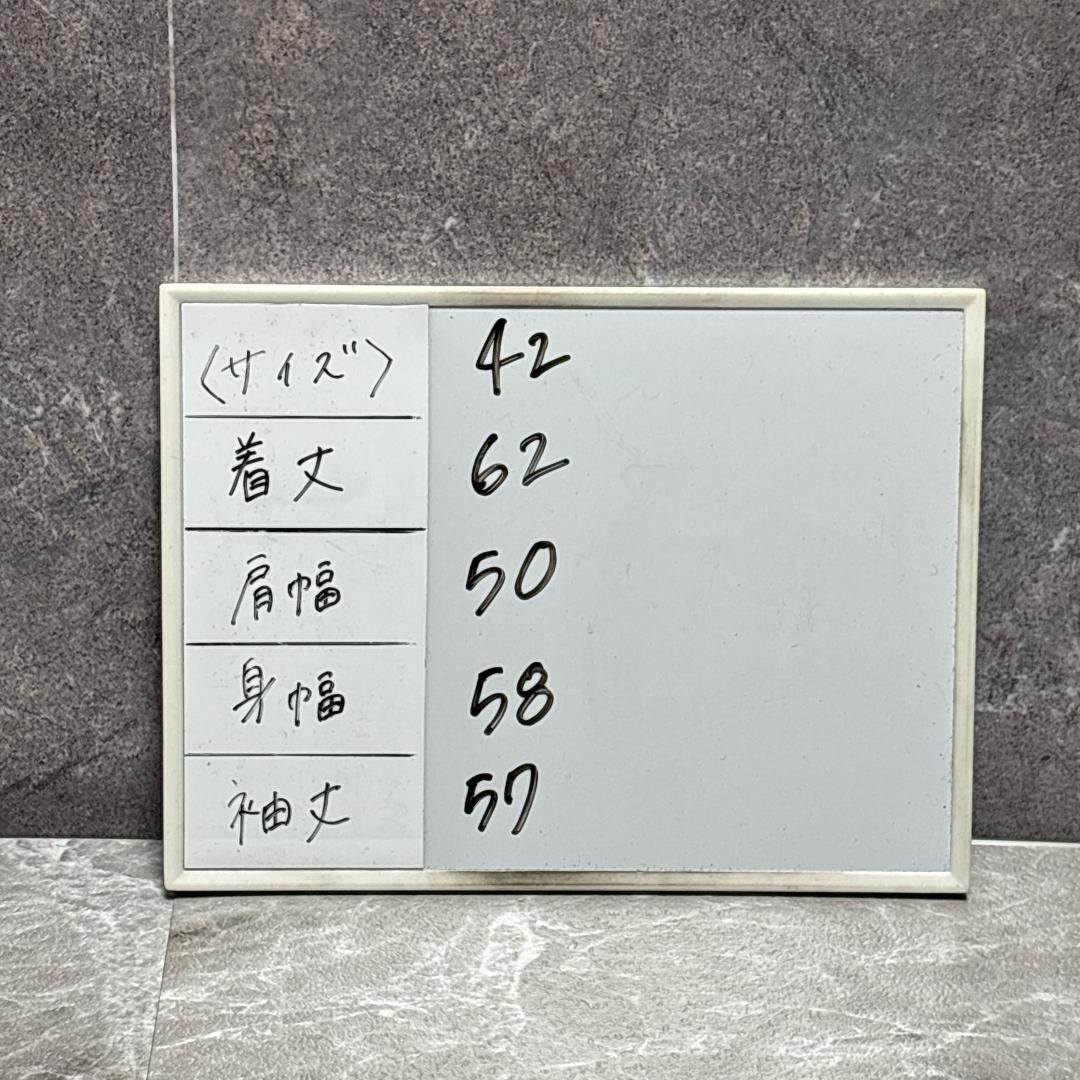 〈サイズ〉 42
着丈 62
肩幅 50
身幅 58
袖丈 57